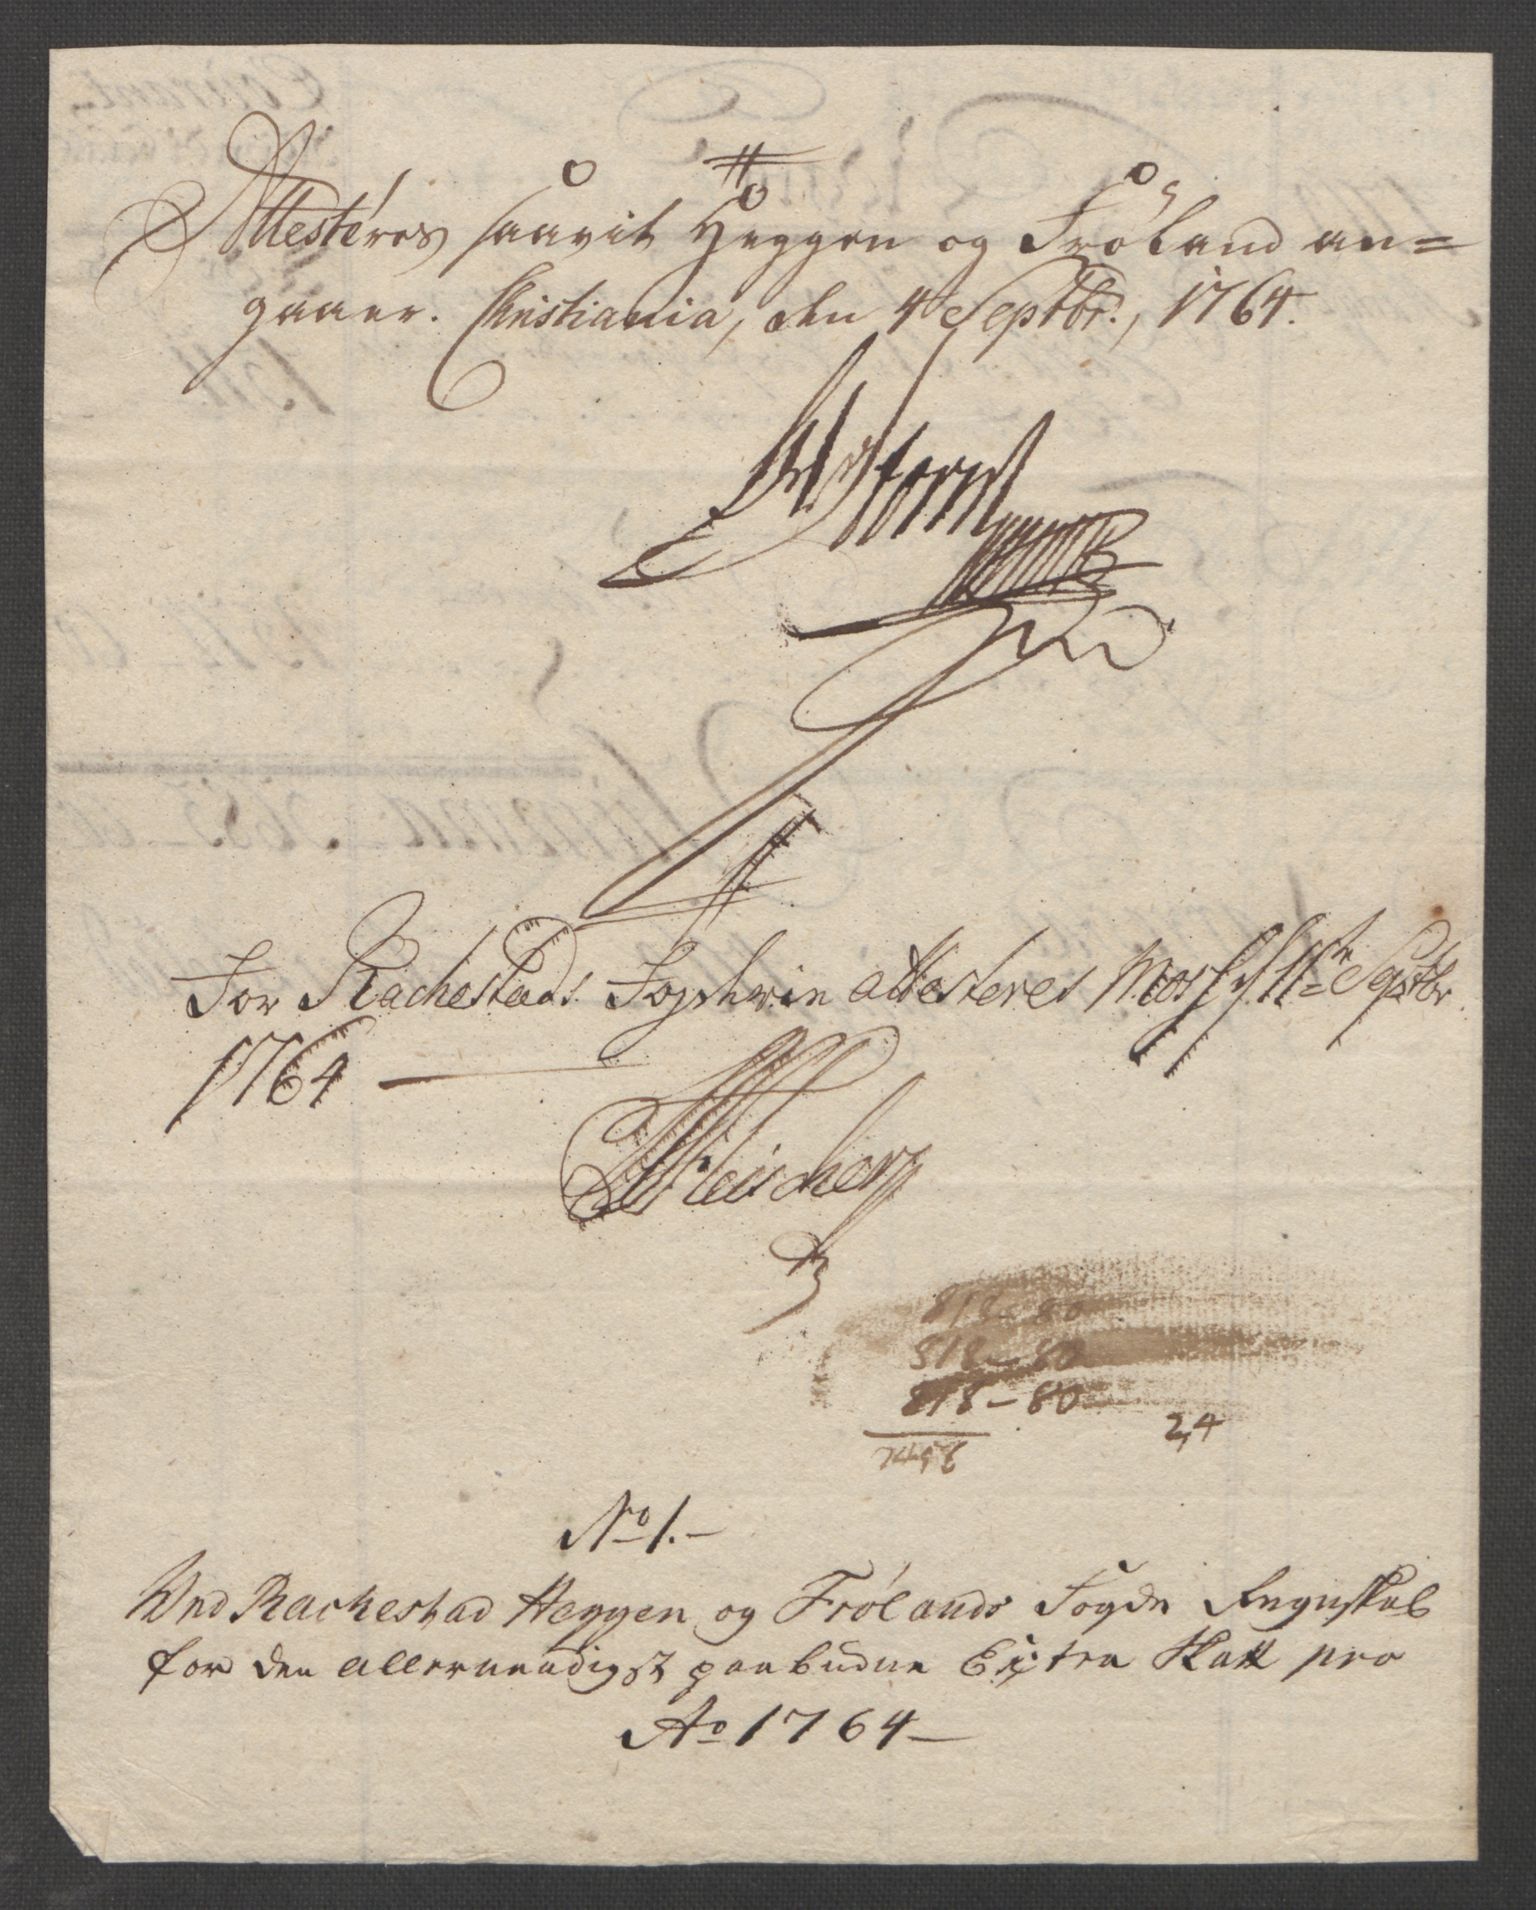 Attesteres saavit Heggen og Frøland an=
gaaer. Christiania, den 4 Septbr., 1764.
For Rachestads Fogderie attesteres Moss d 11te Septbr
1764
818-80
818-80
818-80
2,4
No 1.
Wed Rackestad Heggen og Frølands Fogde Regnskab
for den allernaadigst paabudne Extra Skatt pro
Ao 1764